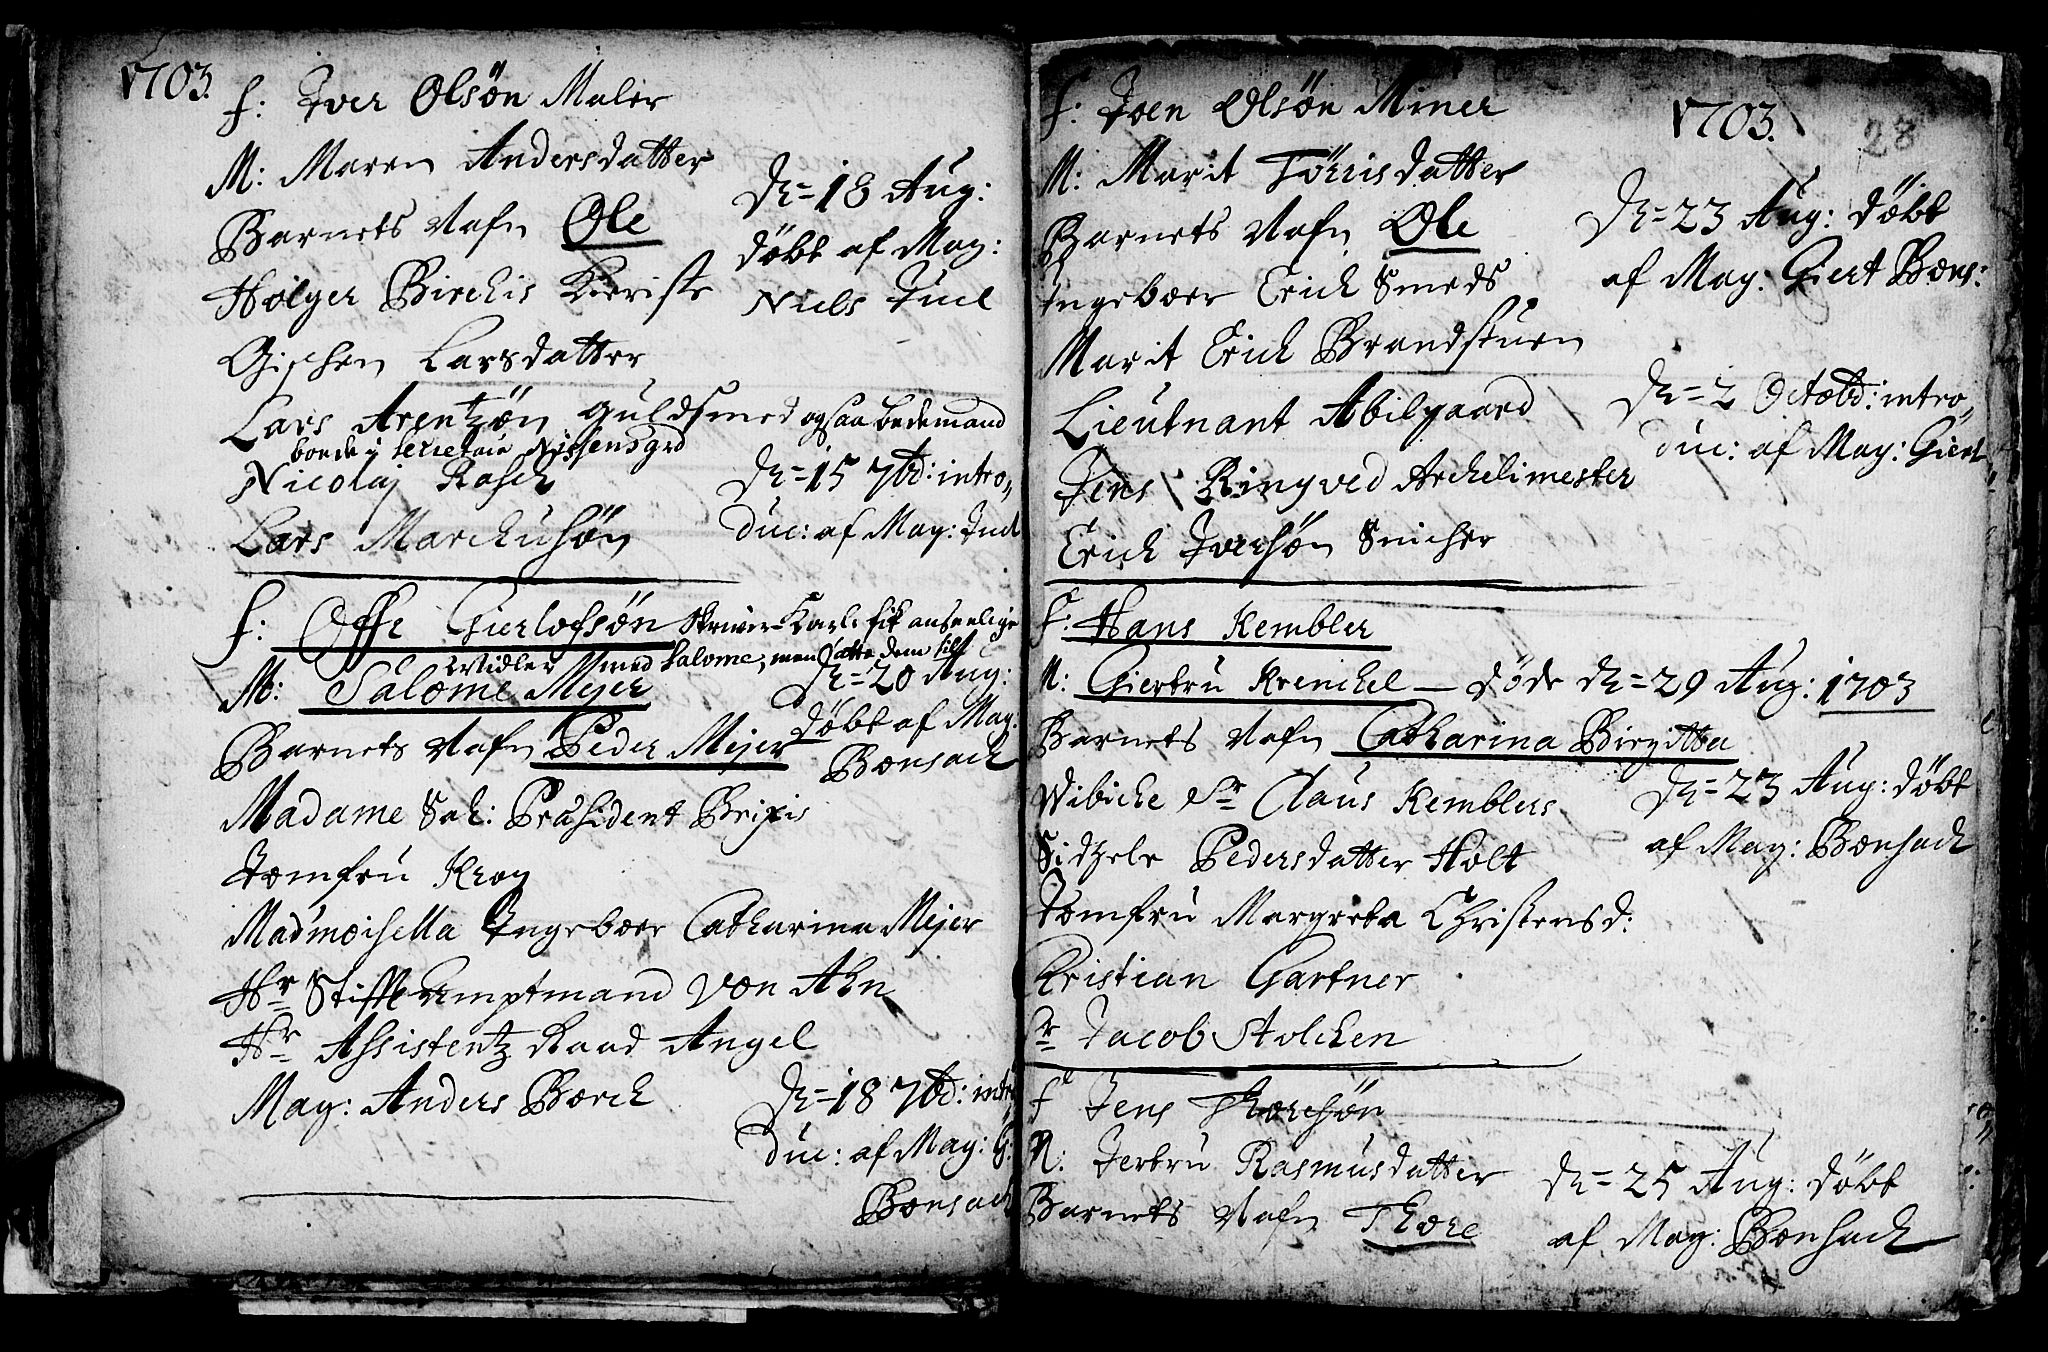 1703.
F: Iver Olsön Maler
M: Maren Andersdatter
Barnets Nafn Ole
Holger Birchis Kieriste
Gischen Larsdatter
Lars Arentzön Guldsmed ogsaa Bedemand
boede i Secretair Nissensgrd
Nicolaj Rasch
Lars Marckusön
D=18 Aug:
döbt af Mag:
Niels Juel
D=15 7br: intro„
duc: af Mag: Juel
F: Offe Gierlofsön Skriver-Karl fik anseelige
Midler med Salome, men satte dem till
M: Salome Mejer
Barnets Nafn Peder Mejer
Madame Sal: Præsident Brixis
Jomfru Krog
Madmoisella Ingeboer Catharina Mejer
Hr Stifft Amptmand Von Ahn
Hr Assistentz Raad Angel
Mag: Anders Borch
D=20 Aug:
döbt af Mag.
Bonsach
D=18 7br: intro
duc: af Mag: G:
Bonsach
1703.
28
F: Joen Olsön Miner
M: Marit Törrisdatter
Barnets Nafn Ole
Ingeboer Erich Smeds
Marit Erich Brandstuen
Lieutnant Abilgaard
Jens Ringved Archelimester
Erich Iversön Snicher
D=23 Aug: döbt
af Mag: Giert Bons:
D=2 Octobr: intro„
duc: af Mag: Giert
F: Hans Kembler
M: Giertru Krenchel — döde D=29 Aug: 1703
Barnets Nafn Catharina Birgitta
Wibiche Sr Claus Kemblers
Sidzele Pedersdatter Holt
Jomfru Margreta Christensd:
Kristian Gartner
Sr Jacob Stolcken
D=23 Aug: döbt
af Mag: Bonsach
F Jens Thoresön
M: Jertru Rasmusdatter
Barnets Nafn Thore
D=25 Aug: döbt
af Mag: Bonsach